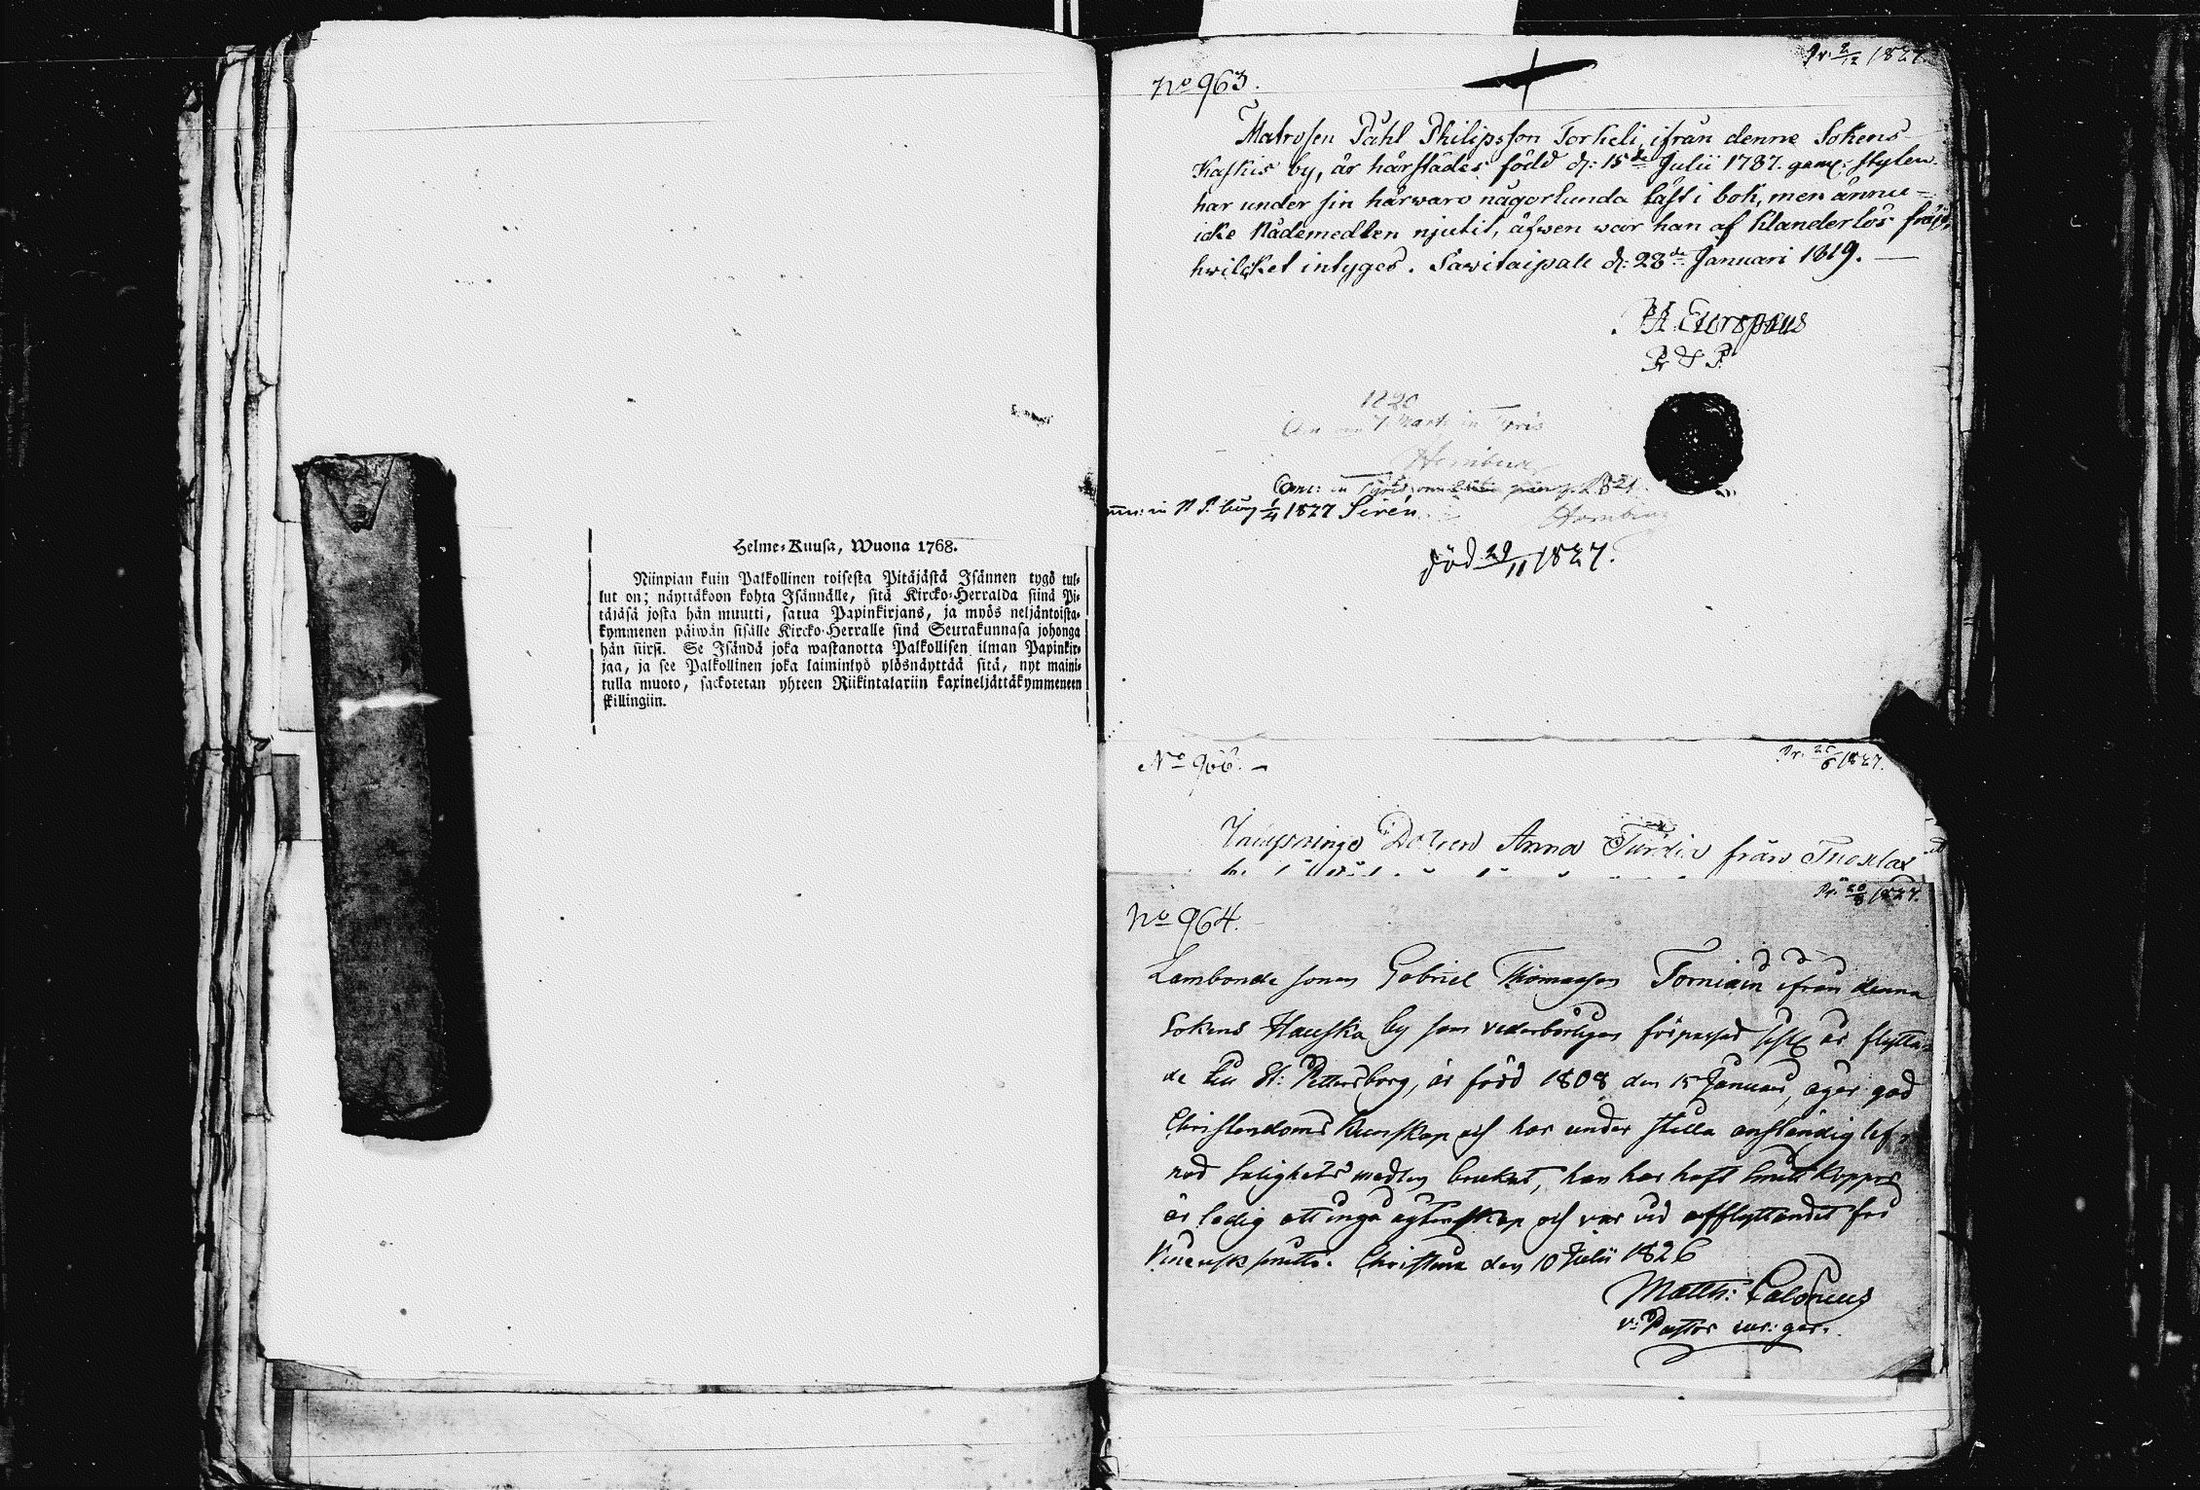 Helme-Kuusa, Wuona 1768.
Niinpian kuin Palkollinen toisesta Pitäjästä Isännen tygö tul-
lut on; näyttäkoon kohta Isännälle, sitä Kircko-Herralda siinä Pi-
täjäsä josta hän muutti, satua Papinkirjans, ja myös neljäntoista-
kymmenen päiwän sisälle Kircko-Herralle sinä Seurakunnasa johonga
hän siirsi. Se Isändä joka wastanotta Palkollisen ilman Papinkir-
jaa, ja see Palkollinen joka laiminlyö ylösnäyttää sitä, nyt maini-
tulla muoto, sackotetan yhteen Riikintalariin kaxineljättäkymmeneen
skillingiin.
Pr. 2/12 1827.
No 963.
Matrosen Påhl Philipsson Torkeli, ifrån denne Sokens
Kaskis by, är härstädes född d: 15de Julii 1787. gaml: stylen.
har under sin härwaro någorlunda läst i bok, men ännu
icke Nådemedlen njutit, äfwen war han af klanderlös fräjd,
hwilcket intyges. Sawitaipale d: 28de Januari 1819.
H. Europæus
P & P
1820
Hornborg
1827 Sirén
död 29/11 1827.
No 966.
Pr. 25/6 1827.
Inhysninge Dotren Anna från
Pr. 20/8 1827.
No 964.
Lambonde sonen Gabriel Thomasson Torniain ifrån denna
Sokens Hauska by som vederbörligen förpassad sistl. år flytta-
de till St: Pettersborg, är född 1808 den 15 Januari, äger god
Christendoms kunskap och har under stilla anständig lef-
nad salighets medlen brukat, han har haft smittkoppor
är ledig att ingå ägtenskap och var vid afflyttandet fri
Venerisk smitta. Christina den 10 Julii 1826
Matth: Calonius
v: Pastor